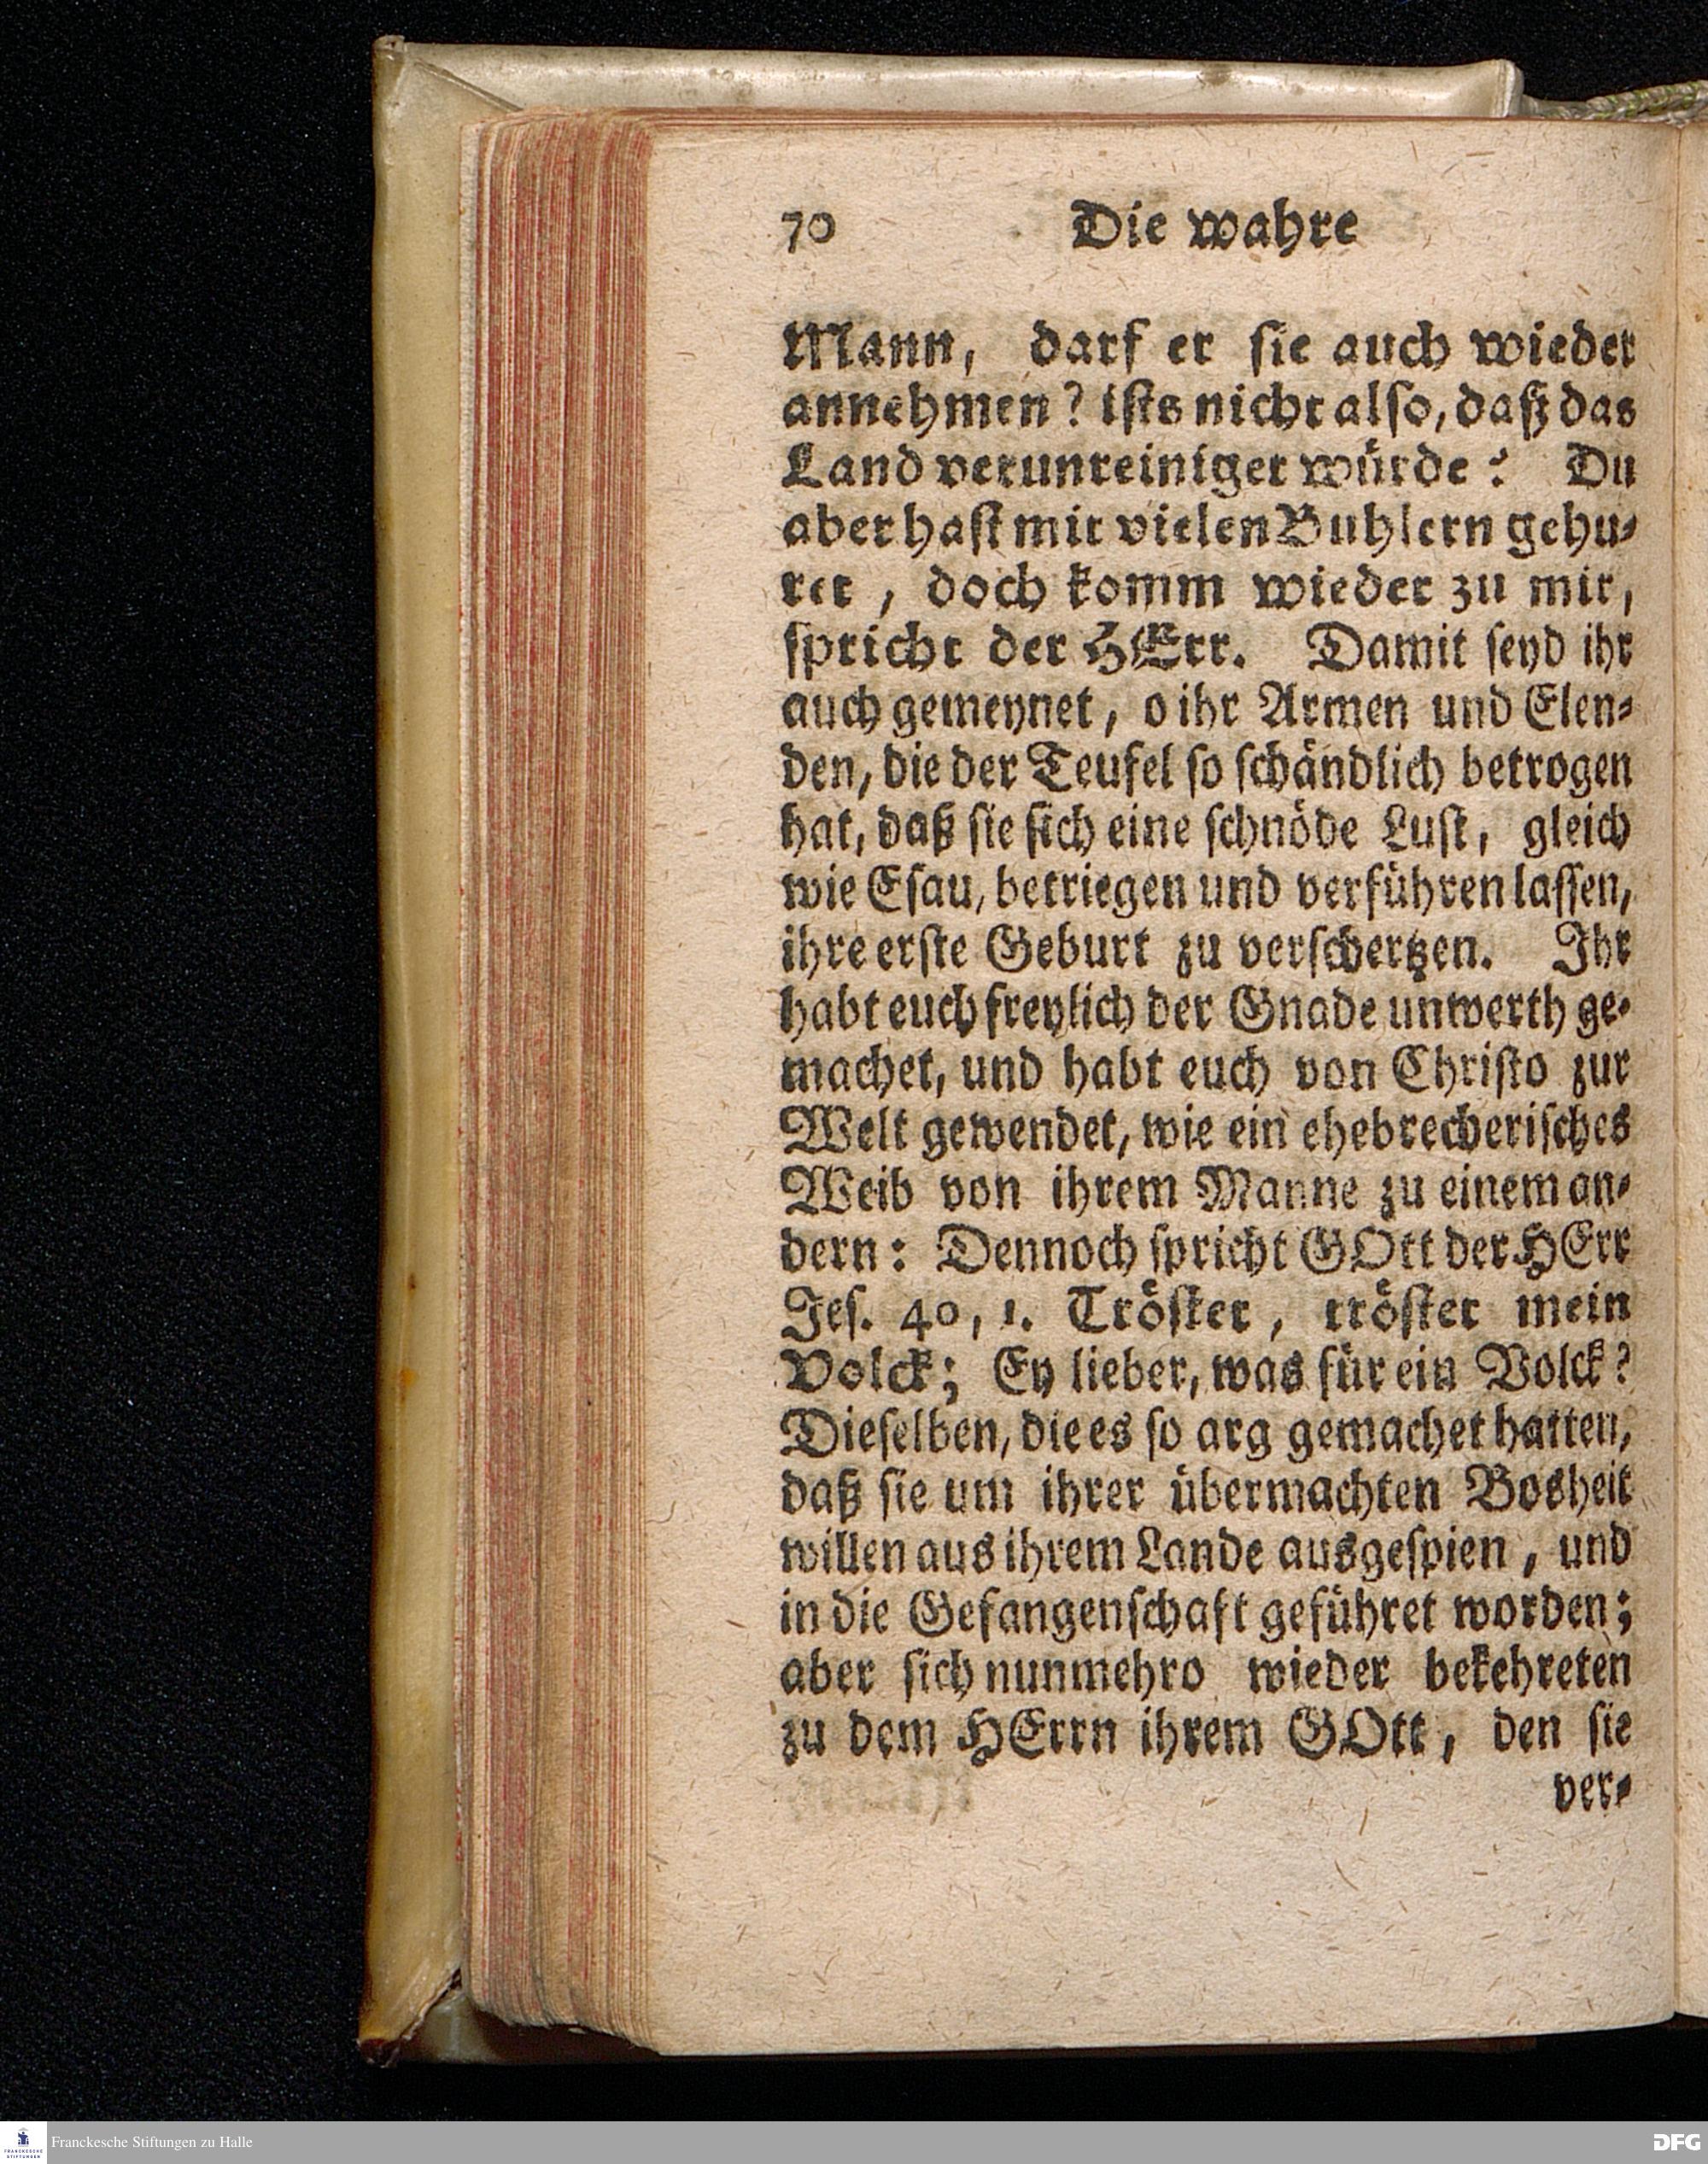 70 Die wahre
Mann, darf er sie auch wieder
annehmen? ists nicht also, daß das
Land verunreiniget würde? Du
aber hast mit vielen Buhlern gehu⸗
ret, doch komm wieder zu mir,
spricht der HErr. Damit seyd ihr
auch gemeynet, o ihr Armen und Elen⸗
den, die der Teufel so schändlich betrogen
hat, daß sie sich eine schnöde Lust, gleich
wie Esau, betriegen und verführen lassen,
ihre erste Geburt zu verschertzen. Ihr
habt euch freylich der Gnade unwerth ge⸗
machet, und habt euch von Christo zur
Welt gewendet, wie ein ehebrecherisches
Weib von ihrem Manne zu einem an⸗
dern: Dennoch spricht GOtt der HErr
Jes. 40, 1. Tröstet, tröstet mein
Volck; Ey lieber, was für ein Volck?
Dieselben, die es so arg gemachet hatten,
daß sie um ihrer übermachten Bosheit
willen aus ihrem Lande ausgespien, und
in die Gefangenschaft geführet worden;
aber sich nunmehro wieder bekehreten
zu dem HErrn ihrem GOtt, den sie
ver⸗
FRANCKESCHE STIFTUNGEN
Franckesche Stiftungen zu Halle
DFG